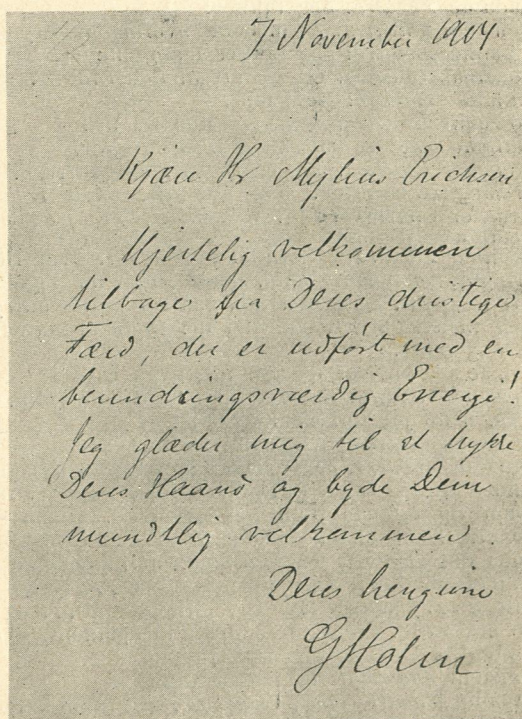 7. November 1904.
Kjære Hr Mylius Erichsen
Hjertelig velkommen
tilbage fra Deres dristige
Færd, der er udført med en
beundringsværdig Energi!
Jeg glæder mig til at trykke
Deres Haand og byde Dem
mundtlig velkommen
Deres hengivne
G Holm